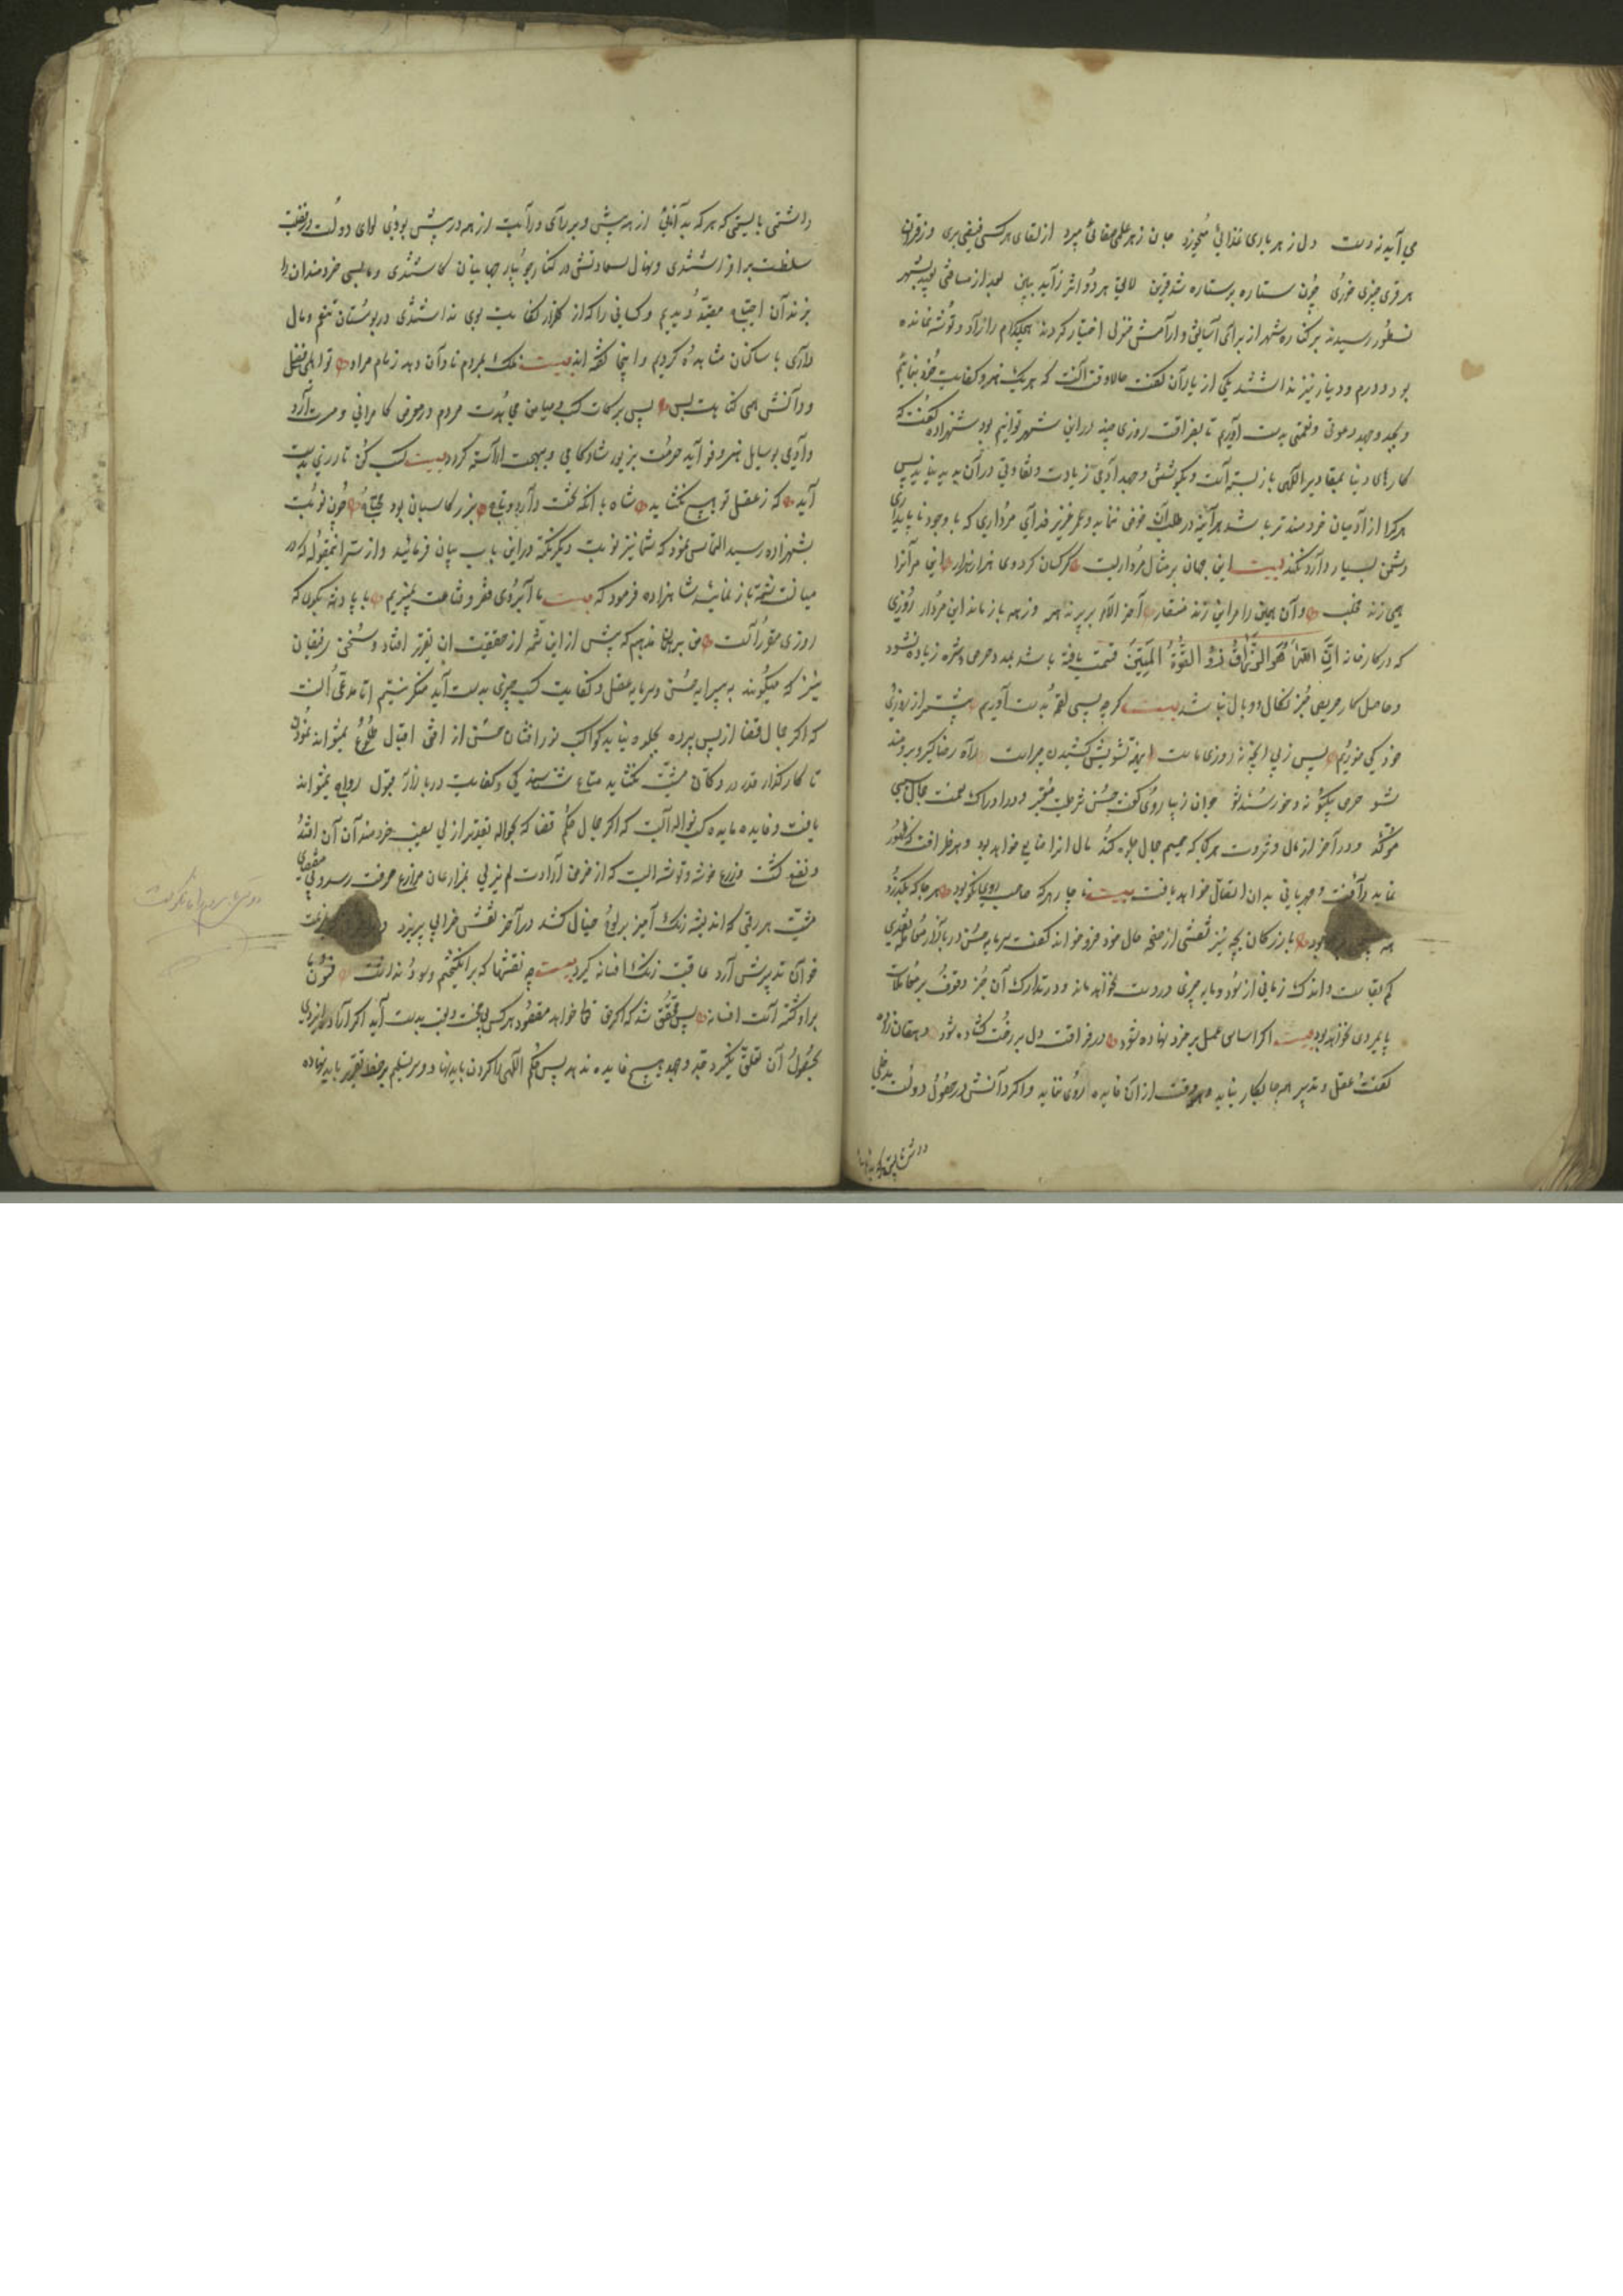 می آید نه دست دل ز هر یاری غذائی میخورد جان ز هر علمی صفائی میبرد از لقای هر کسی فیضی بری وز قران
هر قرین چیزی خوری چون ستاره بر ستاره شد قرین لایق هر دو اثر زاید یقین بعد از مسافتی بعید بشهر
نسطور رسیدند بر کناره شهر از برای آسایش و آرامش منزل اختیار کردند هیچکدام را زاد و توشه نمانده
بود و درم و دینار نیز نداشتند یکی از یاران گفت حالا وقت آنست که هر یک هنر و کفایت خود بنمائیم
و بجد و جهد دعوتی و نعمتی بدست آوریم تا بفراغت روزی چند در این شهر توانیم بود شهزاده گفت که
کارهای دنیا بمقادیر الهی باز بسته است و بکوشش و جهد آدمی زیادت و تفاوتی در آن پدید نیاید پس
هر کرا از آدمیان خردمند تر باشد هر آینه در طلب آن خوض ننماید و عمر عزیز فدای مرداری که با وجود ناپایداری
دشمن بسیار دارد نکند بیت این جهان بر مثال مرداریست کرکسان کرد وی هزار هزار این مر آنرا
همی زند مخلب وآن مر این را همی زند منقار آخر الامر بر پرند همه وز همه باز ماند این مردار روزی
که در کارخانه ان الله هو الرزاق ذو القوة المتین قسمت یافته باشد بعد و حرص و شره زیاده نشود
و حاصل کار حریص جز نکال و وبال نباشد بیت کرچه بسی لقمه بدست آوریم بیشتر از روزی
خود کی خوریم پس ز پی آنچه نه روزی ماست اینهمه تشویش کشیدن چراست راه رضا گیر و برومند
شو حرص یکسو نه و خورسند شو جوان زیبا روی گفت حسن شرطیست معتبر و در ادراک نعمت جمال سببی
موکد و در آخر از مال و ثروت هر کجا که جیم جمال جلوه کند مال از آن تابع خواهد بود و هر طرف که ظهور
نماید رأفت و مهربانی بدان اتصال خواهد یافت بیت ناچار هر که صاحب روی نکو بود هر جا که بگذرد
همه بود بازرکان بچه نیز نقشی از صفحه حال خود فرو خواند گفت سرمایه حسن در بازار معامله نقدی
کم بقاست و اندک زمانی از سود و مایه چیزی در دست نخواهد ماند و در تدارک آن جز وقوف بر معاملات
پایمردی نخواهد بود بیت اکر اساس عمل بر خرد نهاده شود در فراغت دل بر رخت کشاده شود دهقان زاده
گفت عقل و تدبیر همه جا بکار نیاید و همه وقت از آن فایده روی ننماید و اکر دانش در حصول دولت مدخلی
داشتی بایستی که هر که بدانائی از همه بیش و برای و درایت از همه در پیش بودی لوای دولت در
سلطنت بر افراشتندی و نهال سعادتش در کنار جویبار جهانیان کاشتندی و ما بسی خردمندان را
بزندان احتیاج مقید دیدیم و کسانی را که از گلزار کفایت بوی نداشتندی در بوستان تنعم و مال
داری با ساکنان مشاهده کردیم و اینجا گفته اند بیت فلک بمردم نادان دهد زمام مراد تو اهل فضل
و دانش همین گناهت بس پس برکات کسب میامن مجاهدت مردم در معرض کامرانی و مسرت آرد
و آدمی بوسایل هنر و فواید حرفت بزیور شادکامی و بهجت آراسته کردد بیت کسب کن تا درمی بدست
آید که ز عقل تو هیچ نکشاید شاه با آنکه تخت دارد و تاج بزر کاسبان بود محتاج چون نوبت
بشهزاده رسید التماس نمود که شما نیز نوبت دیگر نکته در این باب بیان فرمائید و از سر اینمقوله که در
میانست شمه باز نمائید شاهزاده فرمود که بیت ما آبروی فقر و قناعت نمیبریم با پادشه بگوی که
روزی مقررست من برین مذهبم که پیش از این شمه از حقیقت آن بتقریر افتاد و سخن رفیقان
نیز که میگویند به پیرایه حسن و سرمایه عقل و کفایت کسب چیزی بدست آید منکر نیستم اما مدعی آنست
که اگر جمال قضا از پس پرده بجلوه نیاید کواکب نور افشان حسن از افق اقبال طلوع نمیتواند نمود
تا کارگذار قدر در دکان مشیت نکشاید متاع شایستگی و کفایت در بازار قبول رواج نمیتواند
یافت و فایده مایده کسب نواله ایست که اکر مجال حکم قضا که بحواله تقدیر ازلی بعضی خردمندان آن افتد
و نفع کشت مزارع خوشه و توشه ایست که از خرمن ارادت لم یزلی بمزارعان مزارع حرفت رسد و بی مقتضای
مشیت هر رقمی که اندیشه رنگ آمیز بر لوح خیال کشد در آخر نقش خرابی پذیرد و
خوان تدبیرش آرد عاقبت رنگ افسانه گیرد بیت چه نقشها که بر انگیختم و سود نداشت فسون ما
بر او کشته است افسانه پس محقق شد که اکر حق تعالی خواهد مقصود هر کس بی سخت و تعب بدست آید اگر اراده ایزدی
بحصول آن تعلق نگیرد جد و جهد هیچ فایده ندهد پس حکم الهی را گردن باید نهاد و سر تسلیم بر خط تقدیر باید نهاده